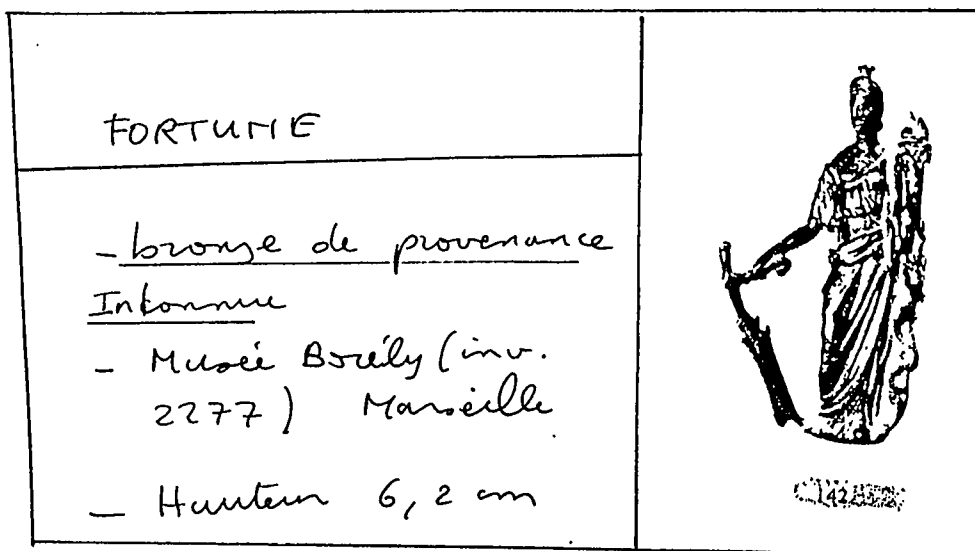 FORTUNE
- bronze de provenance
Inconnue
- Musée Borély (inv.
2277) Marseille
- Hauteur 6,2 cm
142